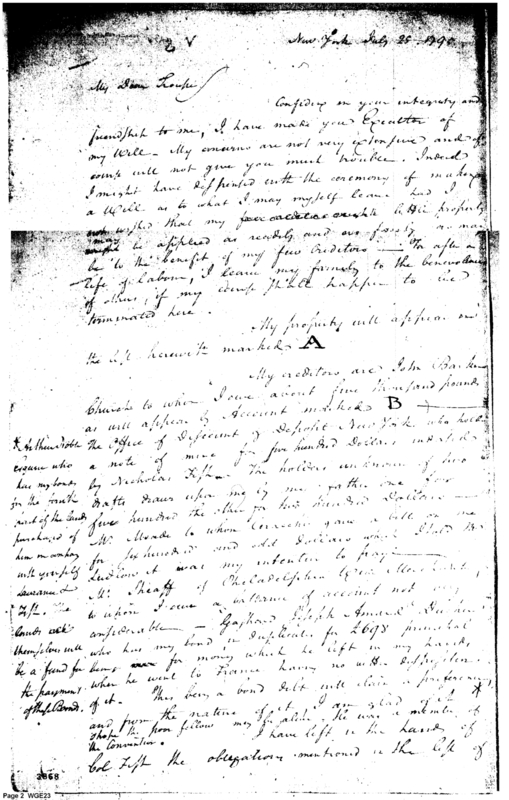 2 V
New York July 25. 1795
My Dear Troupe
Confiding in your integrity and
friendship to me, I have made you Executor of
my Will. My concerns are not very extensive and of
course will not give you much trouble. Indeed
I might have dispensed with the ceremony of making
a Will as to what I may myself leave had I
not wished that my little property
may be applied as readily and as fairly as may
be to the benefit of my few Creditors — For after a
life of labour, I leave my family to the benevolence
of others, if my course shall happen to be
terminated here.
My property will appear in
the list herewith marked A
My creditors are John Barker
Church to whom I owe about five thousand pound
as will appear by Account marked B
the Office of Discount & Deposit New York who hold
a note of mine for five hundred Dollars
by Nicholas Fish. The holders unknown of two
drafts drawn upon me by my father one for
five hundred the other for two hundred Dollars
Mr. Meade to whom Ceracchi gave a bill on me
for six hundred and odd Dollars which
it was my intention to pay
Mr. Sheaff of Philadelphia Wine Merchant
to whom I owe a balance of account not very
considerable — Gaspard Joseph Amand Ducher
who has my bond in Duplicate for £698 principal
being for money which he left in my hands
when he went to France having no other disposition
of it. This being a bond debt will claim a preference
and from the nature of it I am glad of it. *
I hope the poor fellow may be alive. He was a member of
the Convention.
I have left in the hands of
Col Fish the obligations mentioned in the list of
* Arthur Noble
esquire who
has my bond
for the fourth
part of the lands
purchased of
him in company
with yourself
Laurance &
Fish. The
lands
themselves will
be a fund for
the payment
of these Bond.
2868
Page 2 WGE23